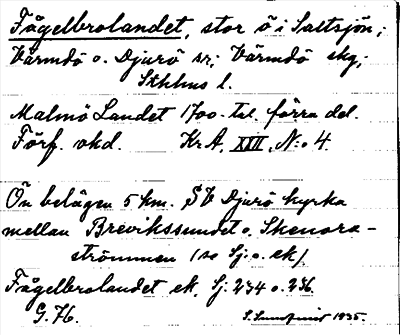 Fågelbrolandet, stor ö i Saltsjön;
Värmdö o. Djurö sr; Värmdö skg;
Sthlms l.
Malmö Landet 1700-tal. förra del.
Förf. okd. Kr.A, XXII, N:o 4.
Ön belägen 5 km. SV Djurö kyrka
mellan Breviksundet o. Skenora-
strömmen (se Sj. o. ek).
Fågelbrolandet ek, Sj. 234 o. 236.
G. 76.
S. Lundqvist 1935.